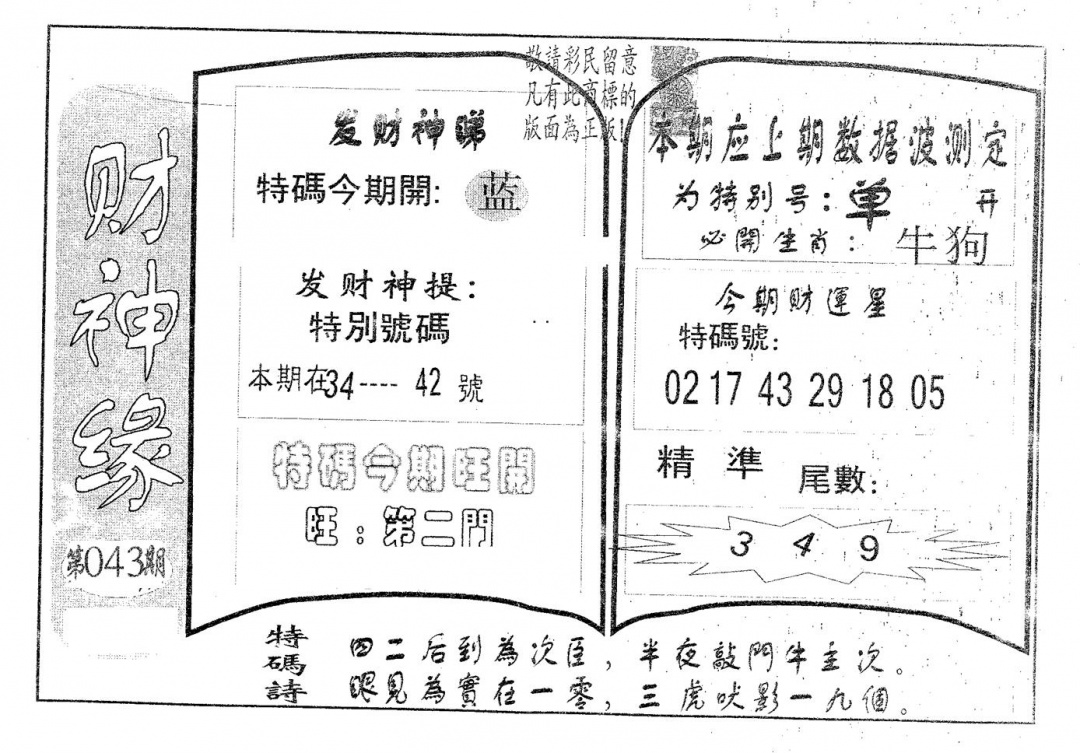 财神缘
第043期
敬請彩民留意
凡有此商標的
版面為正版!
发财神睇
特碼今期開: 蓝
发财神提:
特別號碼
本期在34---- 42 號
特碼今期旺開
旺:第二門
本期应上期数据波测定
为特别号:单 开
必開生肖: 牛狗
今期財運星
特碼號:
02 17 43 29 18 05
精準 尾數:
3 4 9
特碼詩
四二后到為次臣,半夜敲門牛主次。
眼見為實在一零,三虎吠影一九個。